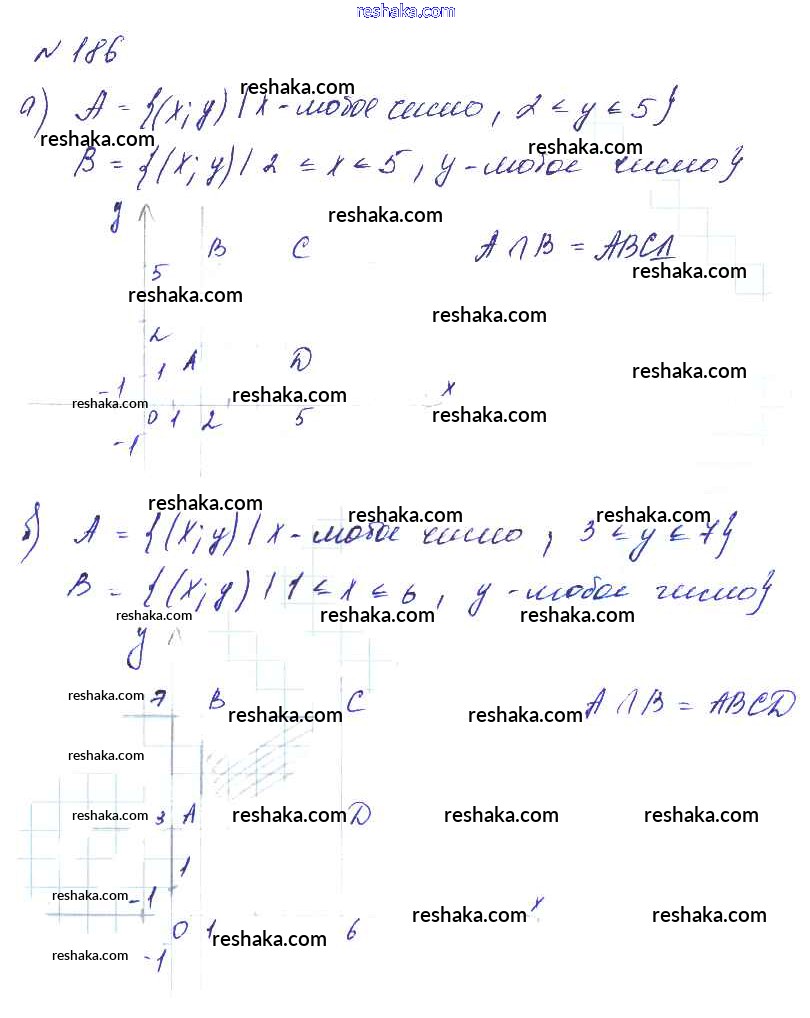 reshaka.com
N 186
reshaka.com
а) A = {(x; y) | x - любое число, 2 ≤ y ≤ 5}
reshaka.com reshaka.com
B = {(x; y) | 2 ≤ x ≤ 5, y - любое число}
y reshaka.com
B C A ∩ B = ABCD
5 reshaka.com
reshaka.com
reshaka.com
2
1 A D reshaka.com
-1 reshaka.com x
reshaka.com reshaka.com
0 1 2 5
-1
reshaka.com reshaka.com reshaka.com
б) A = {(x; y) | x - любое число, 3 ≤ y ≤ 7}
B = {(x; y) | 1 ≤ x ≤ 6, y - любое число}
reshaka.com reshaka.com reshaka.com
y
reshaka.com 7 B C A ∩ B = ABCD
reshaka.com reshaka.com
reshaka.com
reshaka.com 3 A reshaka.com D reshaka.com reshaka.com
1
reshaka.com -1 x
reshaka.com reshaka.com
0 1 reshaka.com 6
reshaka.com -1